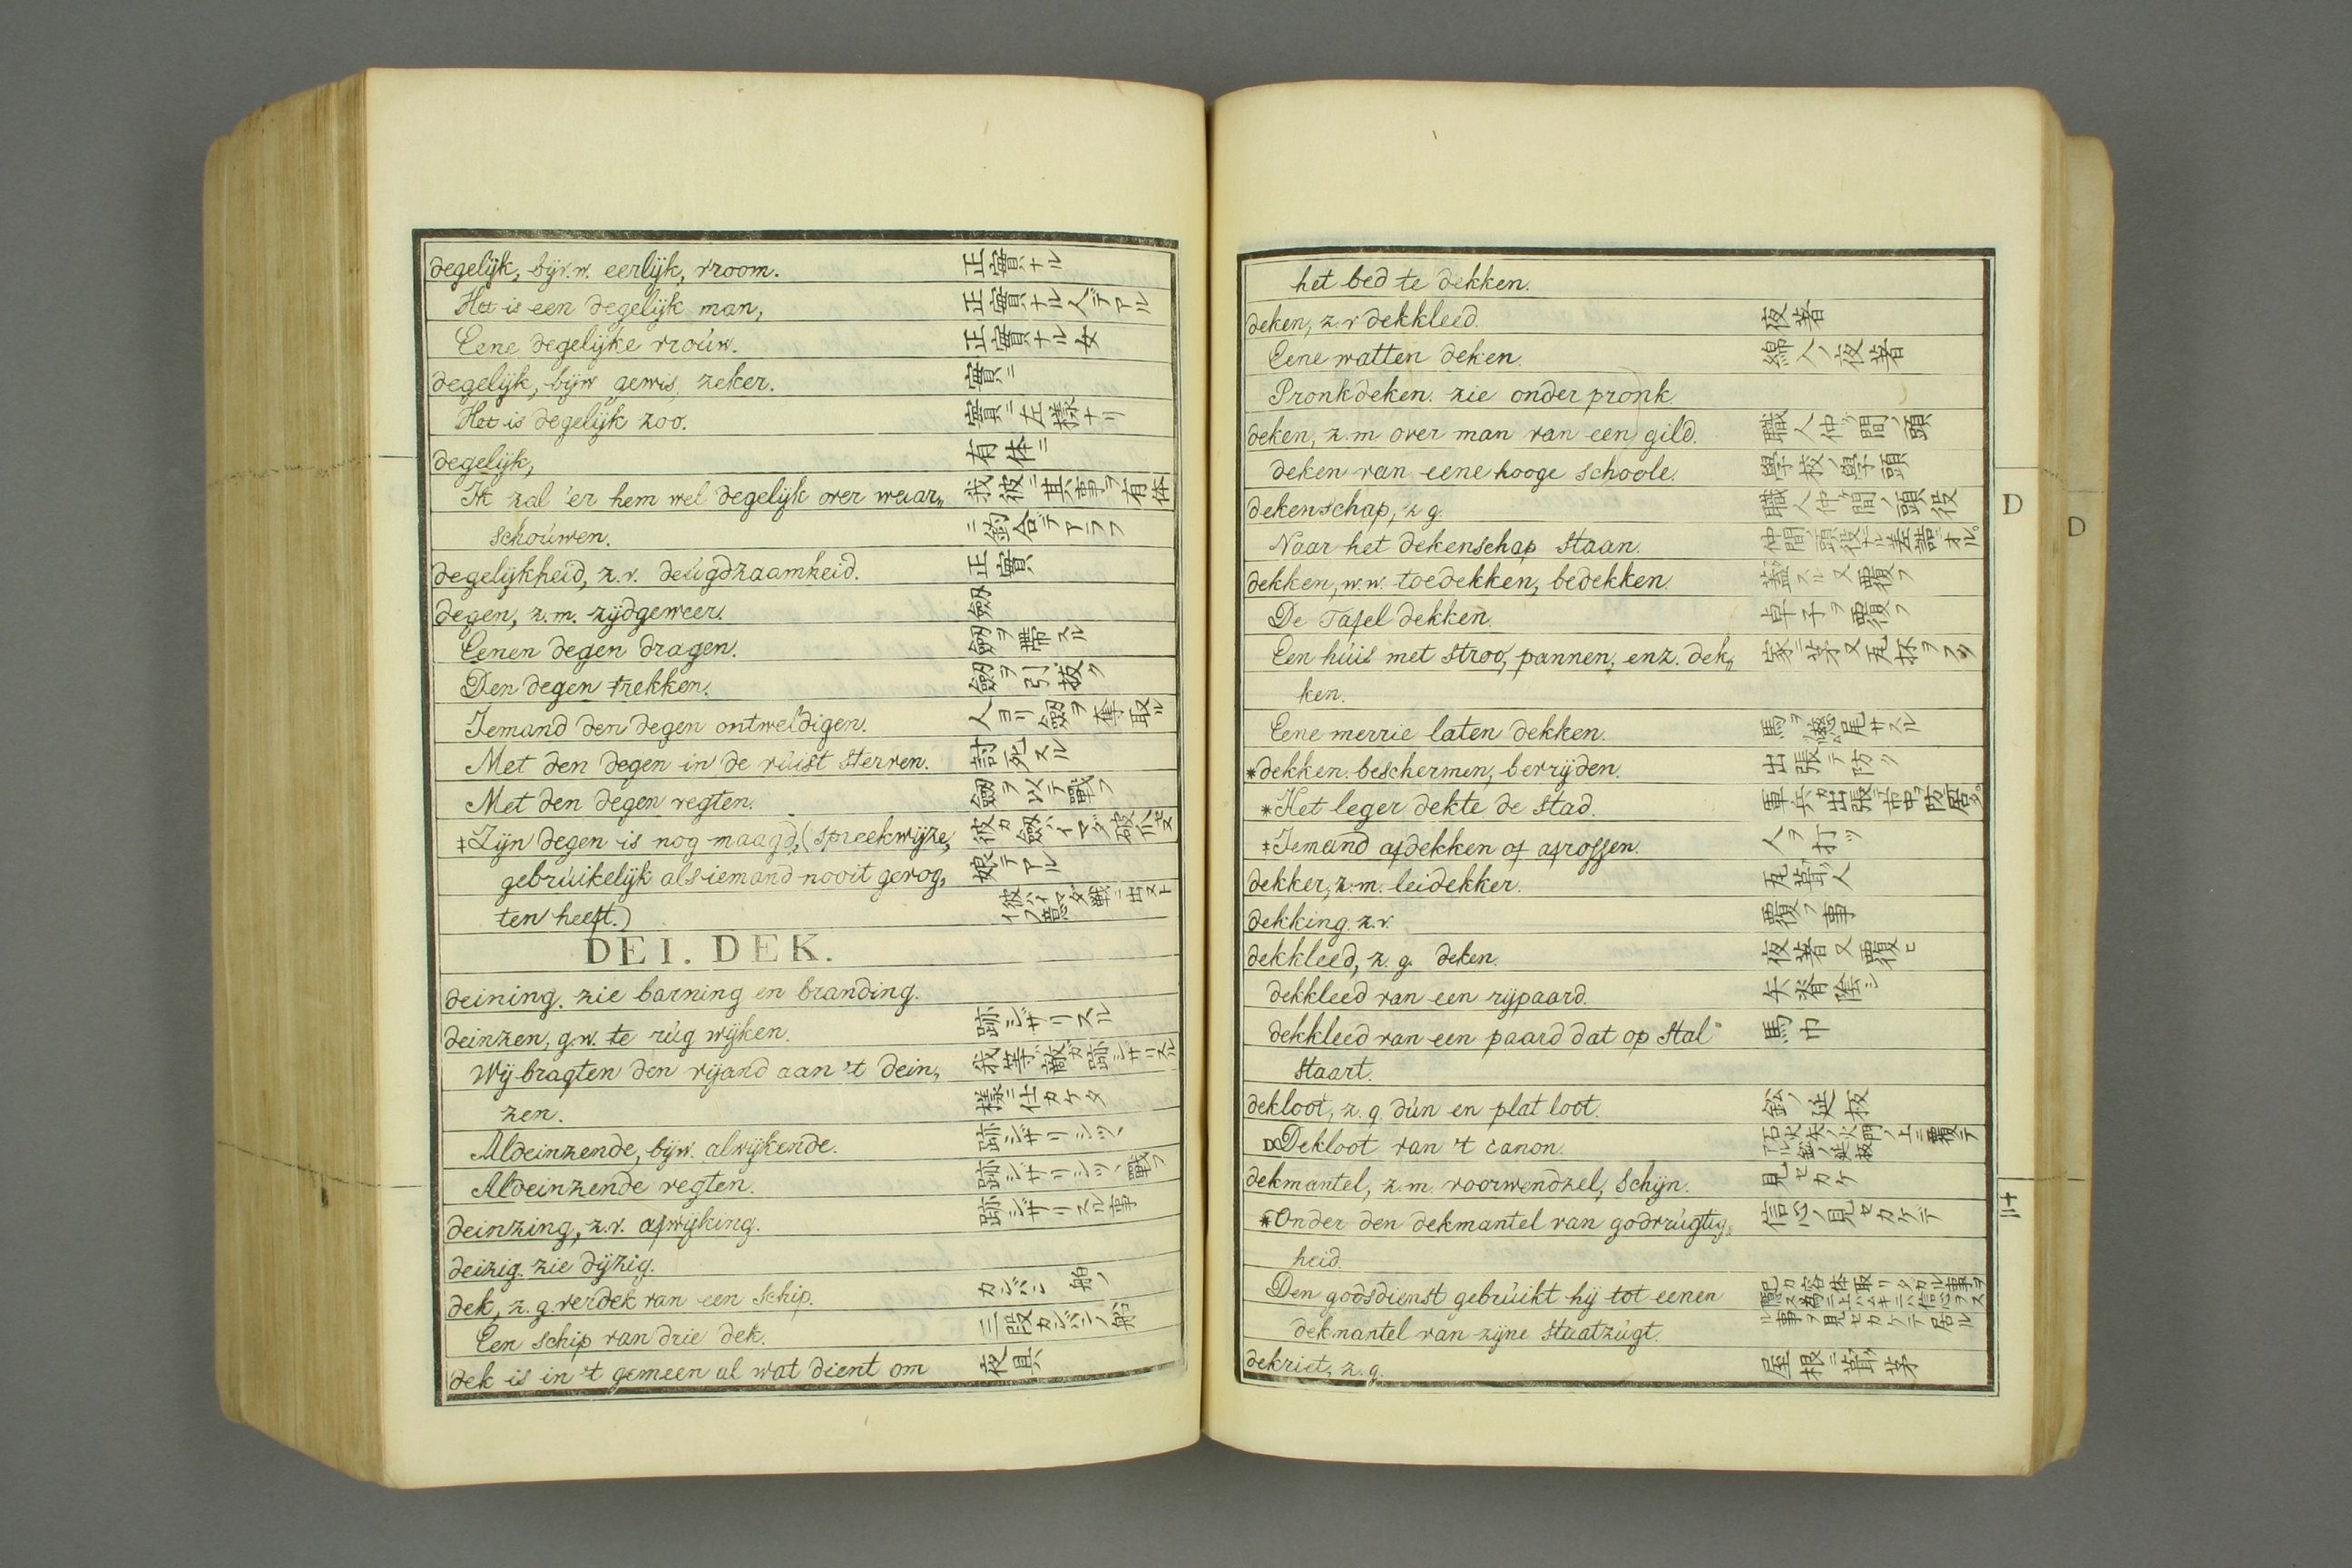 degelijk, bijv.w. eerlijk, vroom. 正實ナル
Het is een degelijk man, 正實ナル人デアル
Eene degelijke vroúw. 正實ナル女
degelijk, bijw gewis, zeker. 實ニ
Het is degelijk zoo. 實ニ左樣ナリ
degelijk, 有体ニ
Ik zal 'er hem wel degelijk over waar„ 我彼ニ其事ヲ有体
schoúwen. ニ釣合デアラフ
degelijkheid, z.v. deúgdzaamheid. 正實
degen, z.m. zijdgeweer. 劔
Eenen degen dragen. 劔ヲ帶スル
Den degen trekken. 劔ヲ引拔ク
Iemand den degen ontweldigen. 人ヨリ劔ヲ奪取ル
Met den degen in de vúist sterven. 討死スル
Met den degen vegten. 劔ヲ以テ戰フ
‡Zijn degen is nog maagd, (spreekwijze, 彼カ劔ハイマダ破爪セヌ
gebrúikelijk als iemand nooit gevog„ 娘デアル
ten heeft.) 彼ハイマダ戰ニ出ヌトイフ意
DEI. DEK.
deining. zie barning en branding.
deinzen, g.w. te rúg wijken. 跡ジサリスル
Wij bragten den vijand aan 't dein„ 我等ガ敵ガ跡ジサリスル
zen. 樣ニ仕カケタ
Aldeinzende, bijw. alwijkende. 跡ジサリシツヽ
Aldeinzende vegten. 跡ジサリシツヽ戰フ
deinzing, z.v. afwijking. 跡ジサリスル事
deizig. zie dijzig.
dek, z.g. verdek van een schip. カンバン 船ノ
Een schip van drie dek. 三段カンバンノ船
dek is in 't gemeen al wat dient om 夜具
het bed te dekken.
deken, z.v dekkleed. 夜著
Eene watten deken. 綿入ノ夜著
Pronkdeken. zie onder pronk.
deken, z.m over man van een gild. 職人仲間ノ頭
deken van eene hooge schoole. 學校ノ學頭
dekenschap, z g. 職人仲間ノ頭役
Naar het dekenschap staan.
dekken, w.w. toedekken, bedekken. 蓋スル又覆フ
De Tafel dekken. 卓子ヲ覆フ
Een húis met stroo, pannen, enz. dek„ 家ニ茅又瓦抔ヲフク
ken.
Eene merrie laten dekken. 馬ヲ尾サスル
*dekken. beschermen, bevrijden. 出張テ防ク
*Het leger dekte de stad. 軍兵ガ出張テ市中ヲ防居タ。
‡Iemand afdekken of afrossen. 人ヲ打ツ
dekker, z.m. leidekker. 瓦葺人
dekking. z.v. 覆フ事
dekkleed, z.g. deken. 夜著又覆ヒ
dekkleed van een rijpaard. 矢脊陰シ
dekkleed van een paard dat op stal 馬巾
staart.
dekloot, z.g. dún en plat loot. 鈆ノ延板
Dekloot van 't canon. 石火矢ノ火門ノ上ニ覆テアル鈆ノ延板
dekmantel, z.m. voorwendzel, schijn. 見セカケ
*Onder den dekmantel van godvrúgtig„ 信心ノ見セカケテ
heid.
Den godsdienst gebrúikt hij tot eenen
dekmantel van zijne staatzúgt. ル事ヲ見セカケテ居ル
dekriet, z.g. 屋根ニ葺茅
D
D